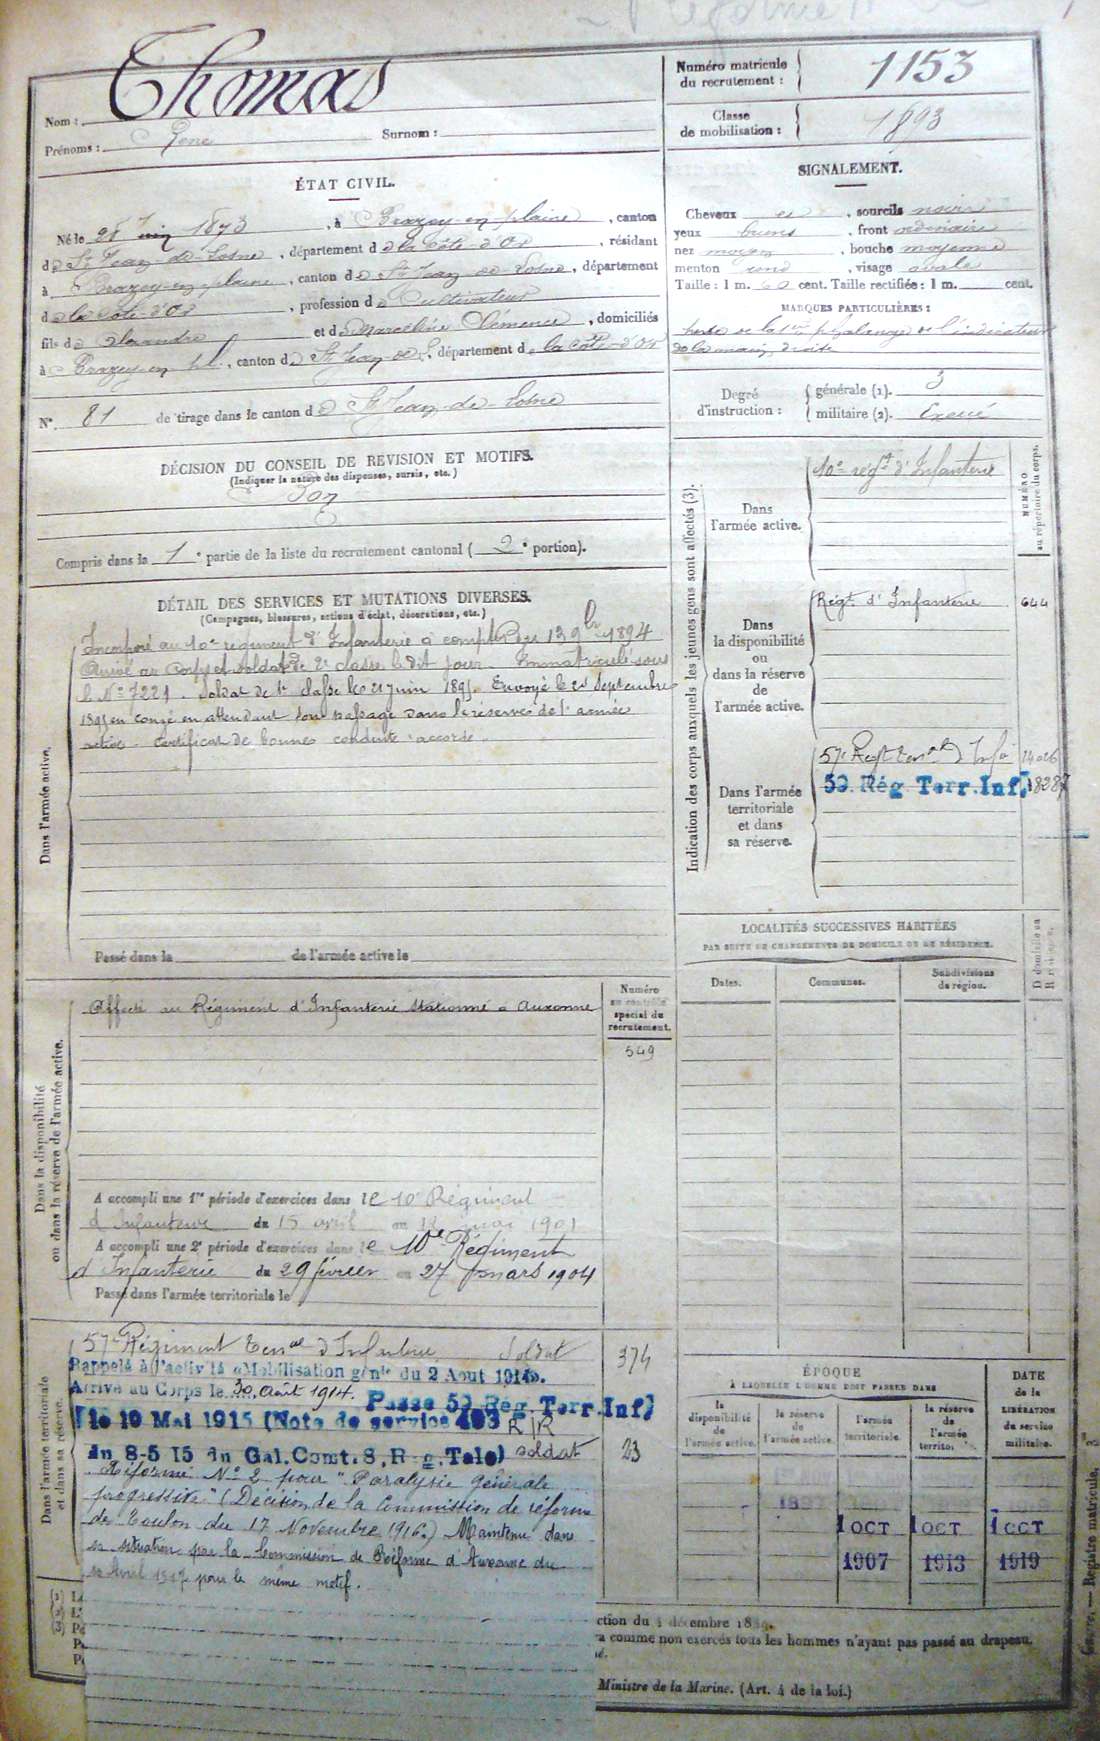 Réforme N°
Nom : Thomas
Prénoms : René Surnom :
Numéro matricule du recrutement : 1153
Classe de mobilisation : 1893
ÉTAT CIVIL.
Né le 28 Juin 1873, à Brazey-en-plaine, canton
de St Jean-de-Losne, département de la Côte-d'Or, résidant
à Brazey-en-plaine, canton de St Jean de Losne, département
de la Côte-d'Or, profession de Cultivateur
fils de Alexandre et de Marceline Clémence, domiciliés
à Brazey-en-pl., canton de St Jean de L., département de la Côte-d'Or
N° 81 de tirage dans le canton de St Jean-de-Losne
SIGNALEMENT.
Cheveux et, sourcils noirs
yeux bruns, front ordinaire
nez moyen, bouche moyenne
menton rond, visage ovale
Taille : 1 m. 60 cent. Taille rectifiée : 1 m. cent.
MARQUES PARTICULIÈRES :
perte de la 1ère phalange de l'indicateur
de la main droite
Degré d'instruction :
générale (1). 3
militaire (2). Exercé
DÉCISION DU CONSEIL DE REVISION ET MOTIFS.
(Indiquer la nature des dispenses, sursis, etc.)
Bon
Compris dans la 1e partie de la liste du recrutement cantonal (2e portion).
DÉTAIL DES SERVICES ET MUTATIONS DIVERSES.
(Campagnes, blessures, actions d'éclat, décorations, etc.)
Dans l'armée active.
Incorporé au 10e régiment d'Infanterie à compter du 13 9bre 1894
Arrivé au Corps et soldat de 2e classe le dit jour. Immatriculé sous
le N° 7221. Soldat de 1e classe le 21 juin 1895. Envoyé le 21 Septembre
1895 en congé en attendant son passage dans la réserve de l'armée
active. Certificat de bonne conduite accordé.
Passé dans la de l'armée active le
Indication des corps auxquels les jeunes gens sont affectés (3).
NUMÉRO au répertoire du corps.
Dans l'armée active.
10e régt d'Infanterie
Dans la disponibilité ou dans la réserve de l'armée active.
Régt d'Infanterie 644
Dans l'armée territoriale et dans sa réserve.
57e Regt Terrial d'Infie 14026
59. Rég. Terr. Inf. 18287
LOCALITÉS SUCCESSIVES HABITÉES
PAR SUITE DE CHANGEMENTS DE DOMICILE OU DE RÉSIDENCE.
Dates. Communes. Subdivisions de région. D domicile ou R résidence.
Dans la disponibilité ou dans la réserve de l'armée active.
Affecté au Régiment d'Infanterie stationné à Auxonne
Numéro au contrôle spécial du recrutement.
549
A accompli une 1re période d'exercices dans le 10e Régiment
d'Infanterie du 15 avril au 12 mai 1901
A accompli une 2e période d'exercices dans le 10e Régiment
d'Infanterie du 29 février au 27 mars 1904
Passé dans l'armée territoriale le
Dans l'armée territoriale et dans sa réserve.
57e Régiment Terrial d'Infanterie Soldat 374
Rappelé à l'activité «Mobilisation génle du 2 Aout 1914».
Arrivé au Corps le 30 Août 1914. Passé 59 Rég. Terr. Inf.
le 10 Mai 1915 (Note de service 493 R/R
du 8-5 15 du Gal. Comt. 8. Rég. Tele) soldat 23
Réformé N° 2 pour "Paralysie générale
progressive" (Décision de la Commission de réforme
de Toulon du 17 Novembre 1916.) Maintenu dans
sa situation par la Commission de Réforme d'Auxonne du
Avril 1917 pour le même motif.
ÉPOQUE
À LAQUELLE L'HOMME DOIT PASSER DANS
la disponibilité de l'armée active. la réserve de l'armée active. l'armée territoriale. la réserve de l'armée territo.
DATE de la LIBÉRATION du service militaire.
1 OCT 1 OCT 1 OCT
1907 1913 1919
ction du décembre 18
a comme non exercés tous les hommes n'ayant pas passé au drapeau.
Ministre de la Marine. (Art. 4 de la loi.)
— Registre matricule.